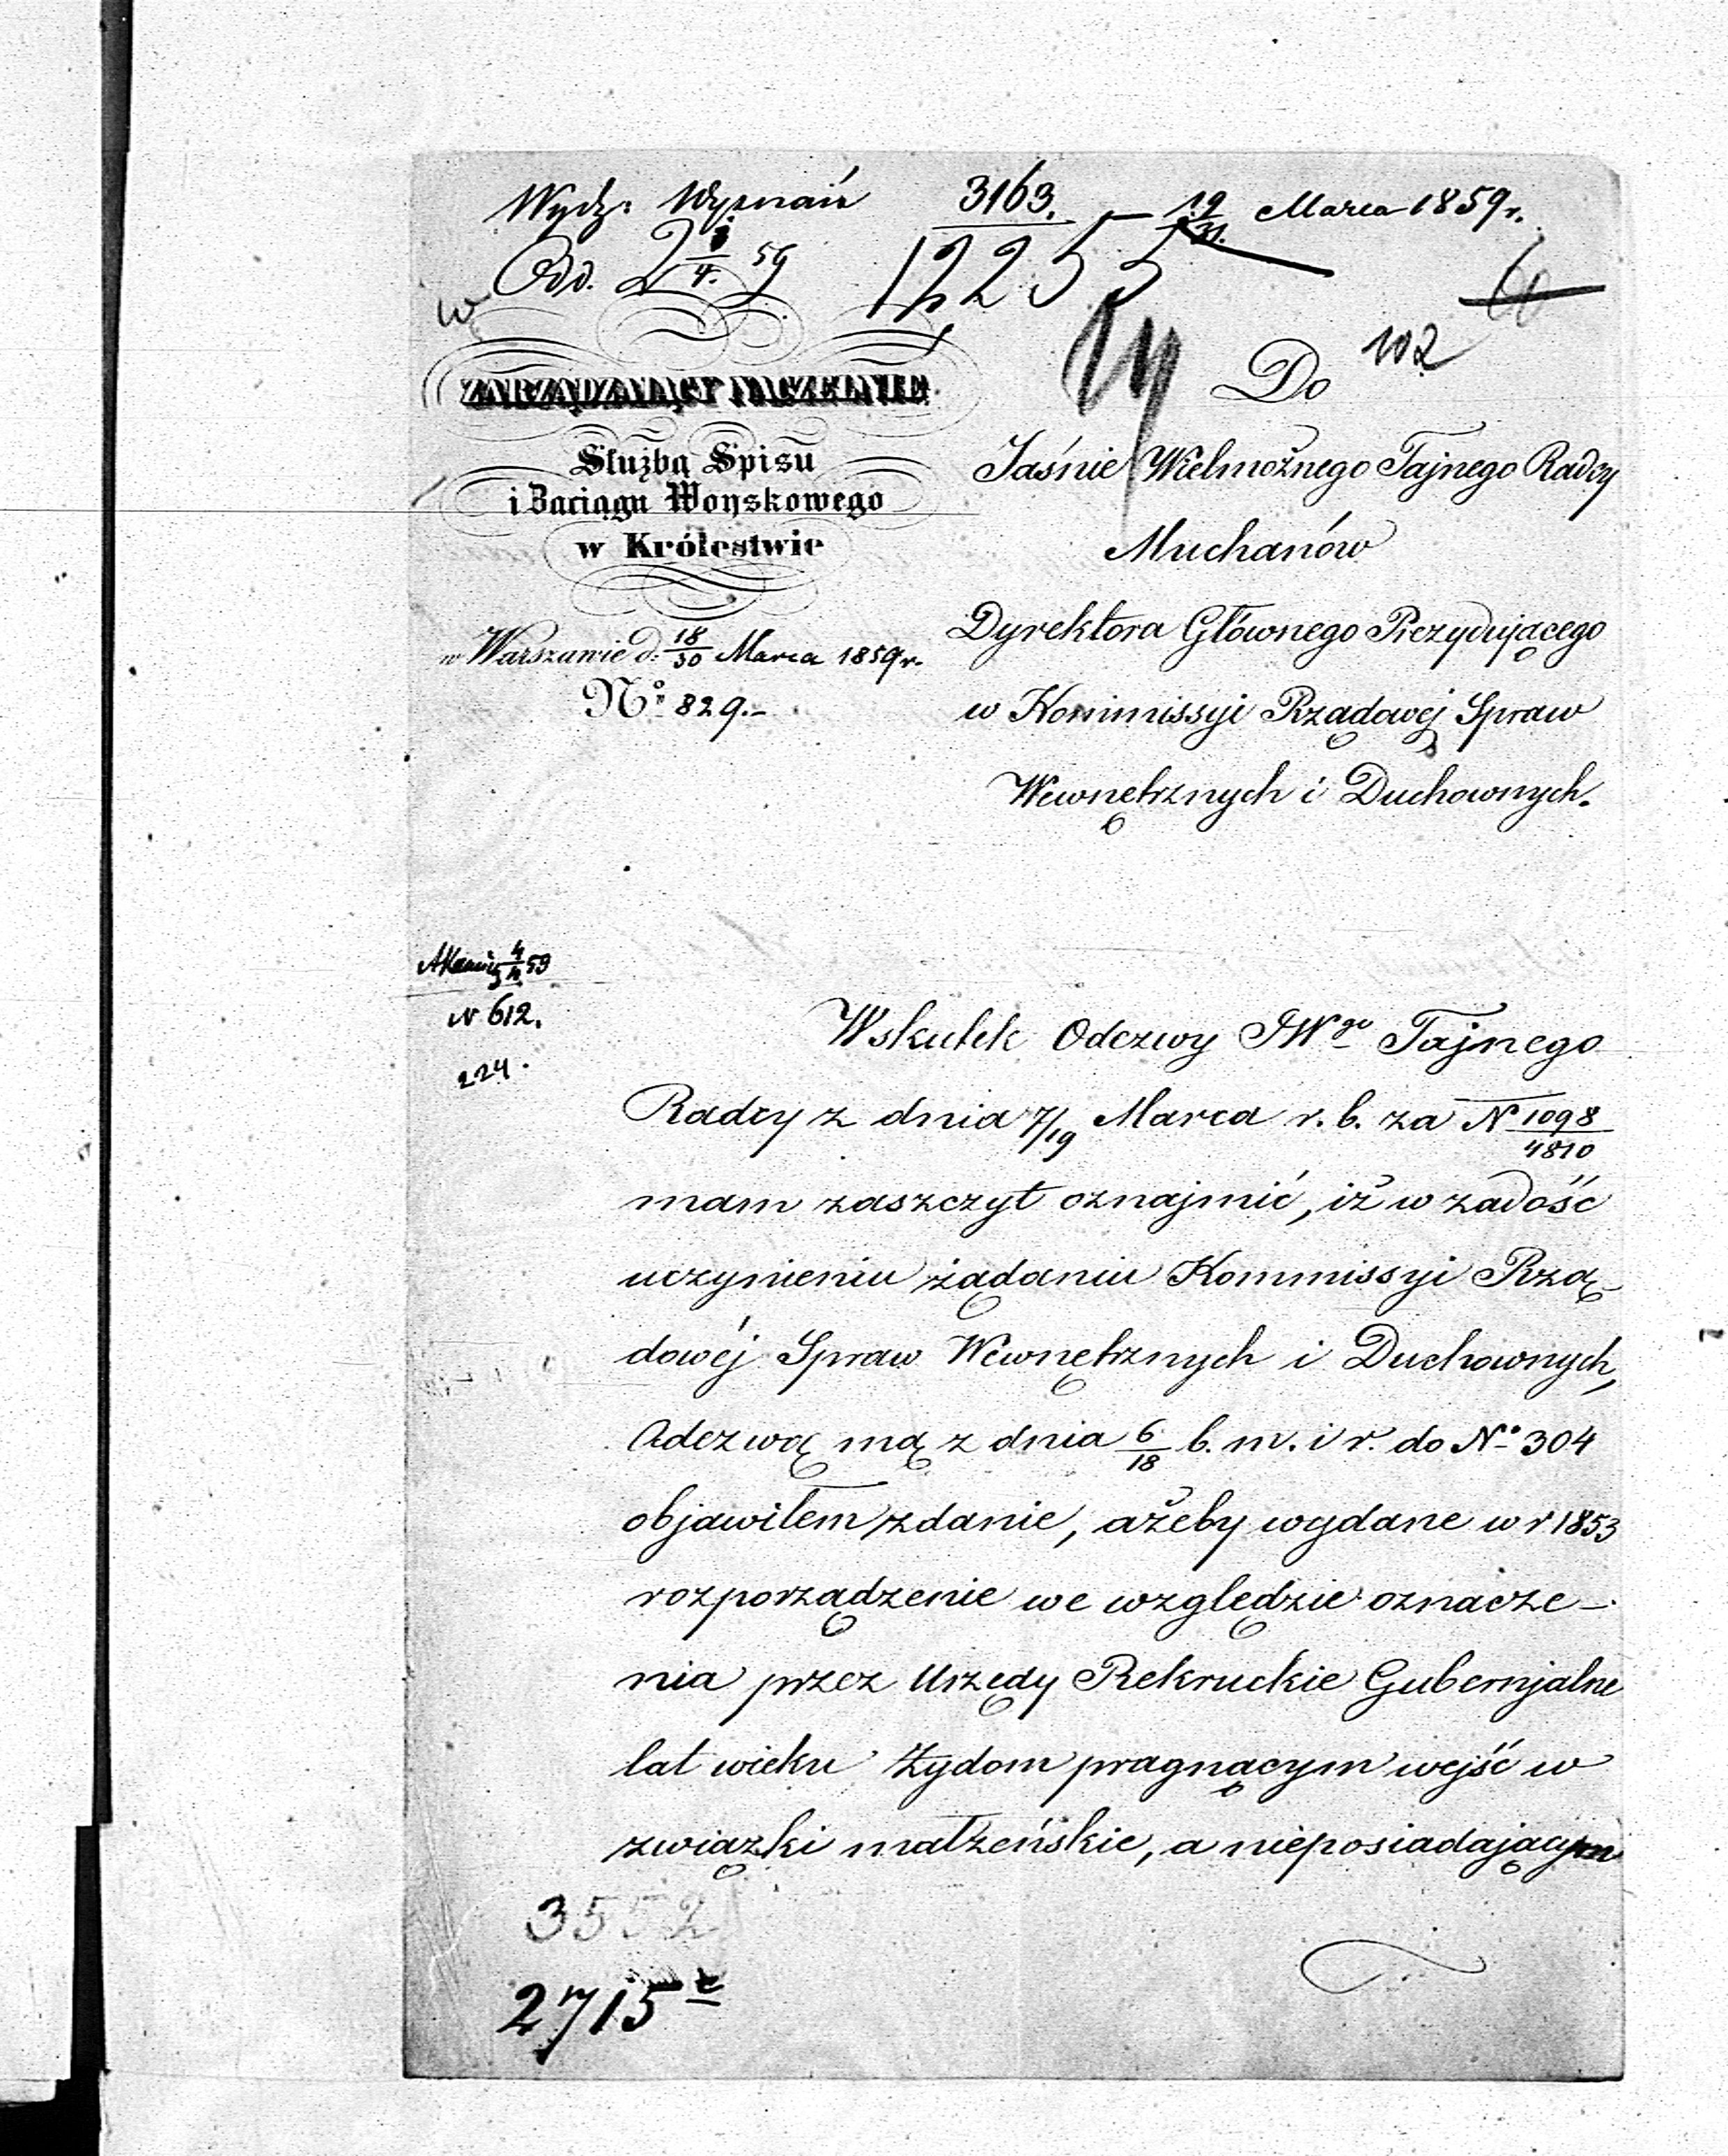 Wydz: Wyznań 3163. – 19/31. Marca 1859 r.
Odd. 2 4. 59 12255
w 60
102
ZARZĄDZAIĄCY NACZELNIE
Służbą Spisu
i Zaciągu Woyskowego
w Królestwie
w Warszawie d: 18/30 Marca 1859 r.
No 829.–
Do
Jaśnie Wielmożnego Tajnego Radcy
Muchanów
Dyrektora Głównego Prezydującego
w Kommissyi Rządowéj Spraw
Wewnętrznych i Duchownych.
59
N 612.
224.
Wskutek Odezwy JWgo Tajnego
Radcy z dnia 7/19 Marca r. b. za N 1098/4810
mam zaszczyt oznajmić, iż w zadość
uczynieniu żądaniu Kommissyi Rzą-
dowéj Spraw Wewnętrznych i Duchownych,
Odezwą mą z dnia 6/18 b. m. i r. do No 304
objawiłem zdanie, ażeby wydane w r 1853
rozporządzenie we względzie oznacze-
nia przez Urzędy Rekruckie Gubernjalne
lat wieku Żydom pragnącym wejść w
związki małżeńskie, a nieposiadającym
3552
2715